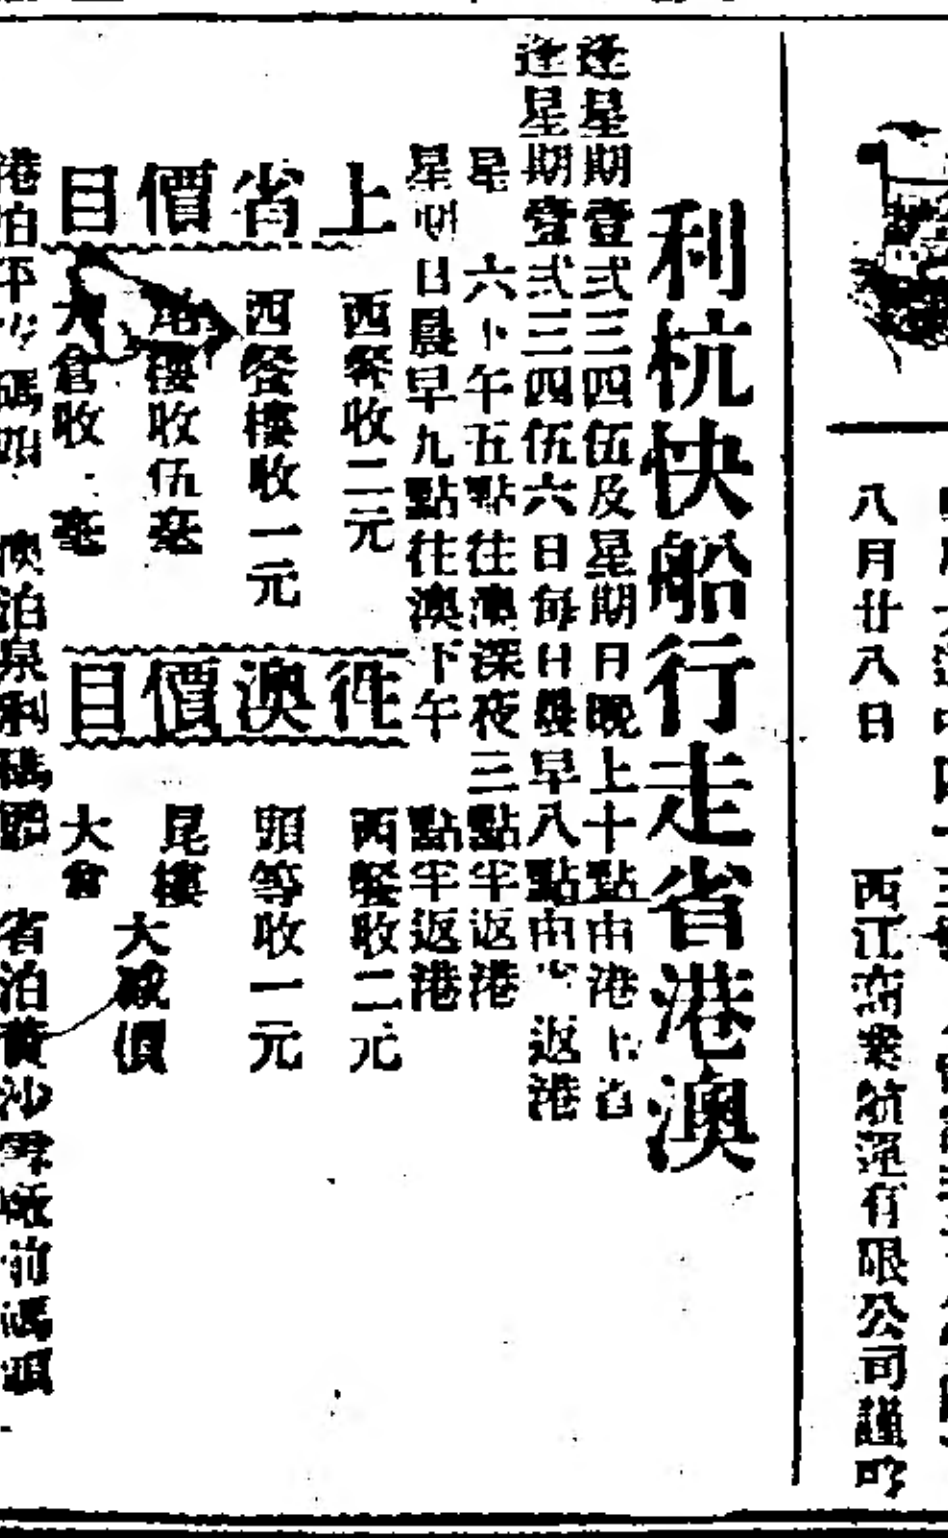 八月廿八日
西江商業航運有限公司謹啓
利杭快船行走省港澳
逢星期壹弍三四伍及星期日晚上十點由港上省
逢星期壹弍三四伍六日每日晨早八點由 返港
星 六下午五點往澳深夜三點半返港
星期日晨早九點往澳下午 點半返港
上省價目
西餐收二元
西餐樓收一元
尾樓收伍毫
大倉收 毫
往澳價目
西餐收二元
頭等收一元
尾樓
大倉
大減價
港泊平 碼頭 澳泊泉利碼頭 省泊黃沙 前碼頭